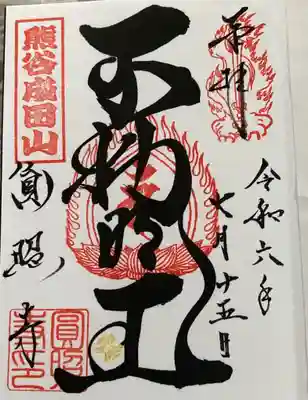 奉拝
令和六年
七月十五日
不動明王
熊谷成田山
圓照寺
圓照
寺印